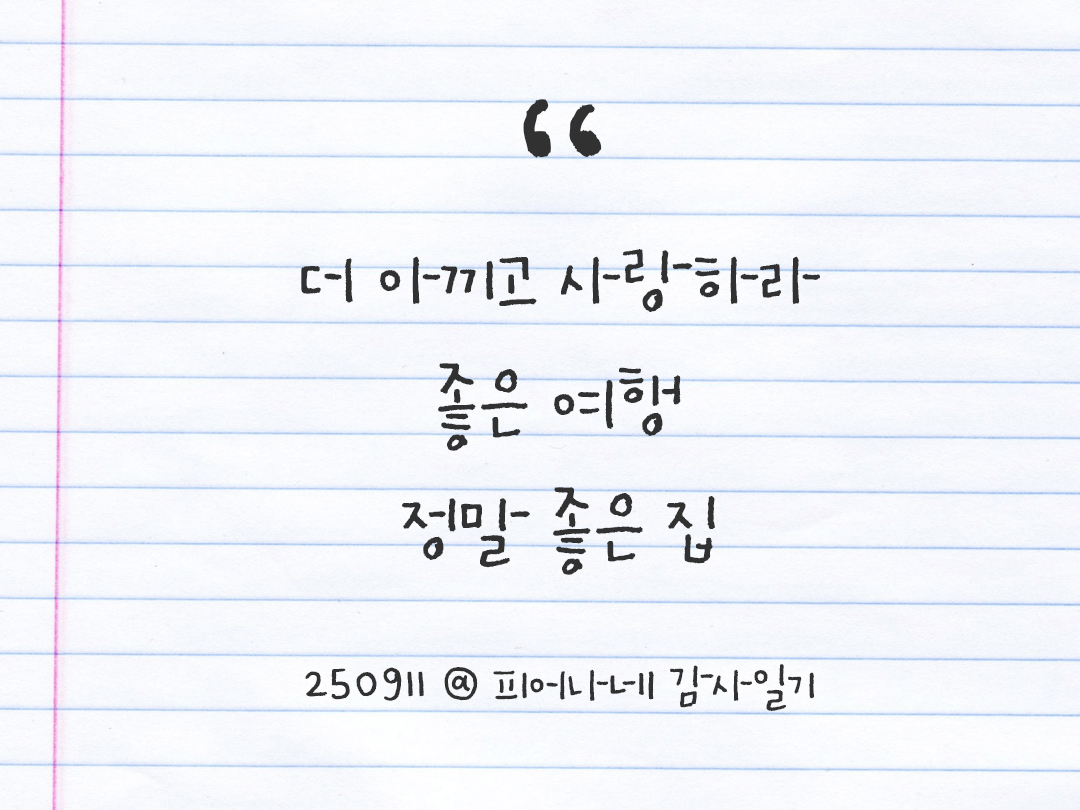 “
더 아끼고 사랑하라
좋은 여행
정말 좋은 집
250911 @ 피어나네 감사일기